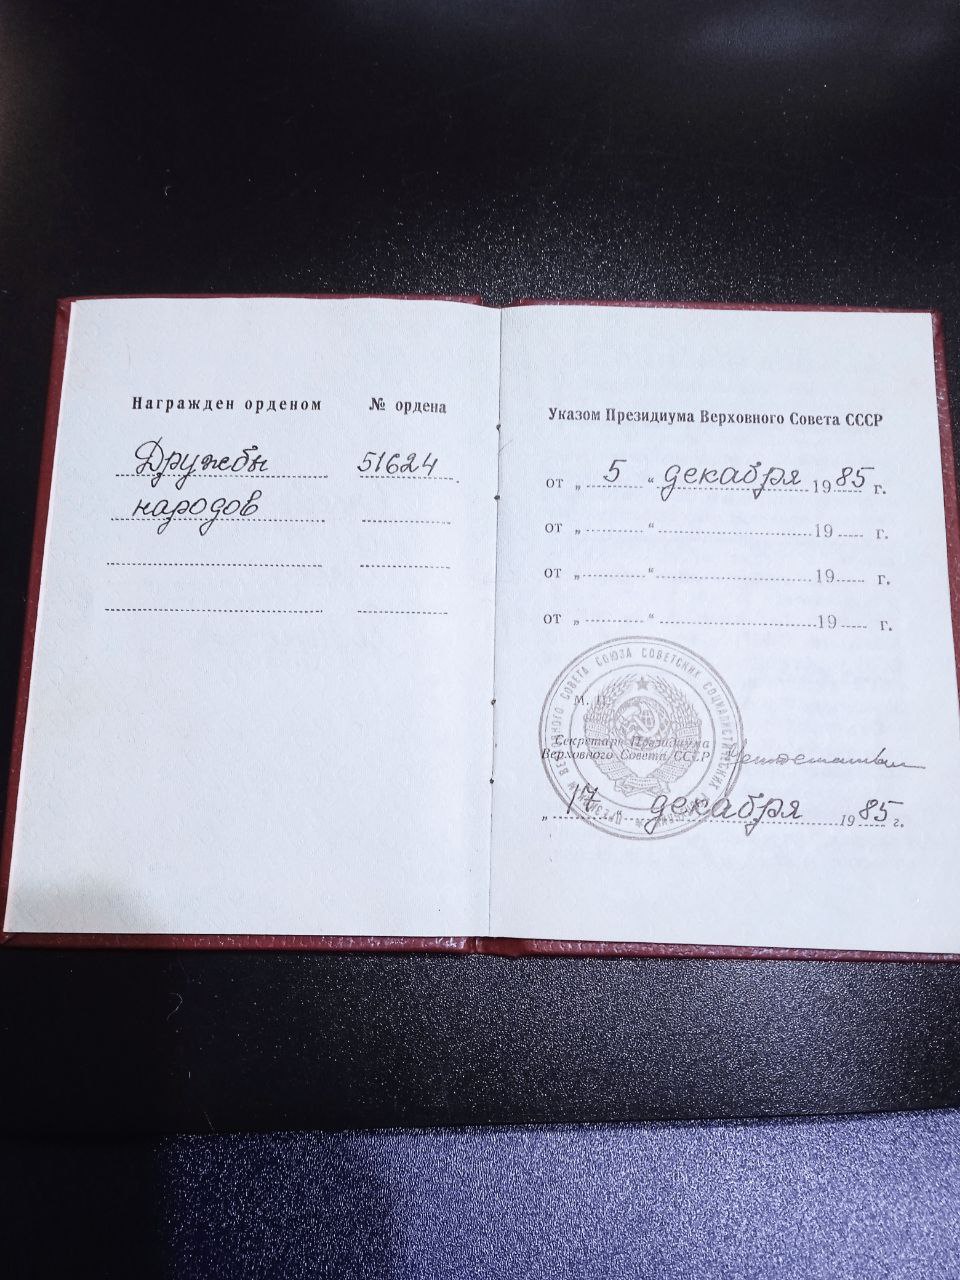 Награжден орденом № ордена
Дружбы 51624
народов
Указом Президиума Верховного Совета СССР
от „ 5 “ декабря 1985 г.
от „ “ 19 г.
от „ “ 19 г.
от „ “ 19 г.
ВЕРХОВНОГО СОВЕТА СОЮЗА СОВЕТСКИХ СОЦИАЛИСТИЧЕСКИХ
М. П.
Секретарь Президиума
Верховного Совета СССР
„ 17 декабря 1985 г.